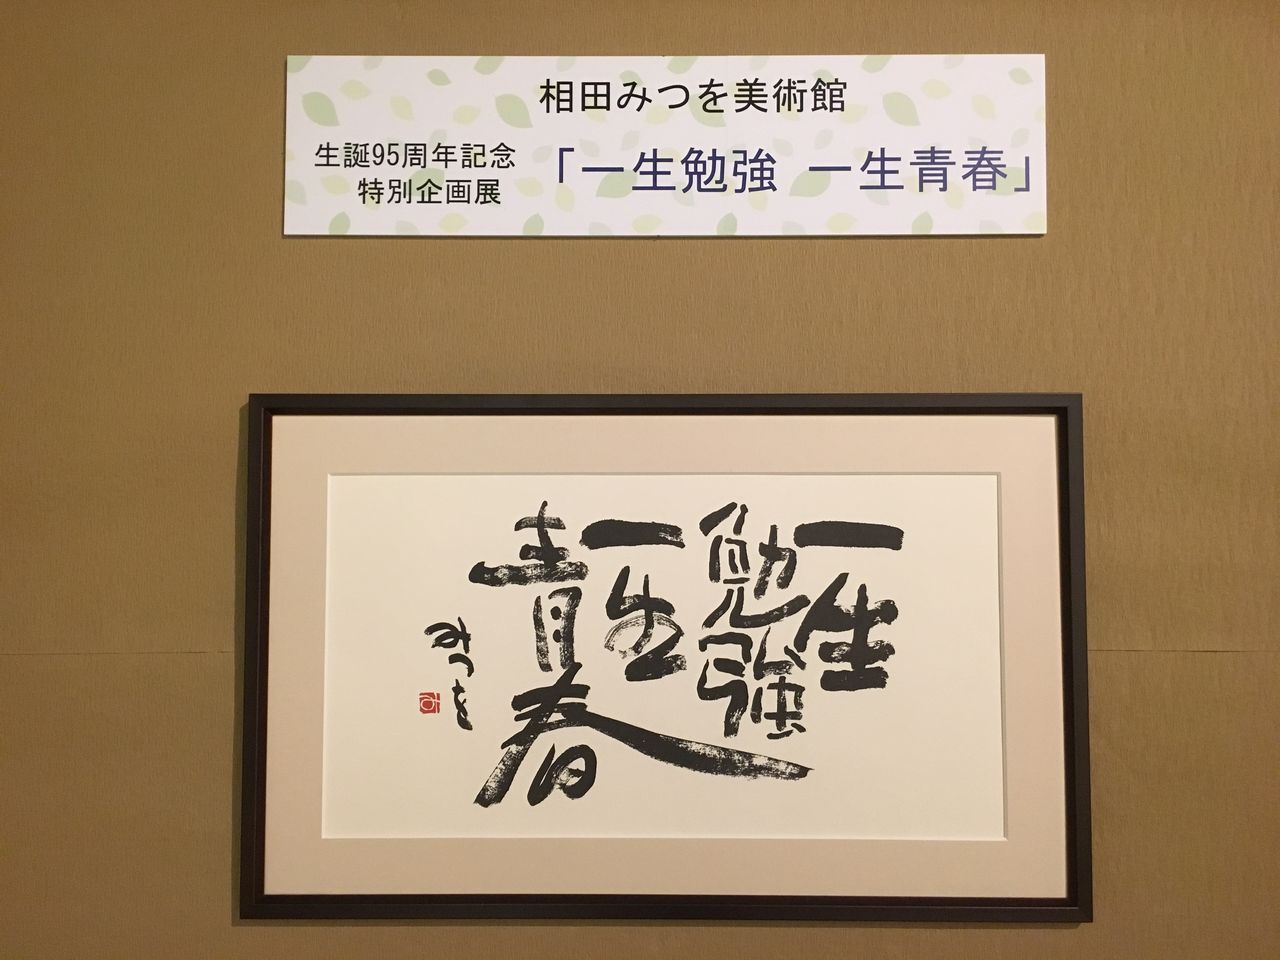 相田みつを美術館
生誕95周年記念
特別企画展
「一生勉強 一生青春」
一生
勉強
一生
青春
みつを
み